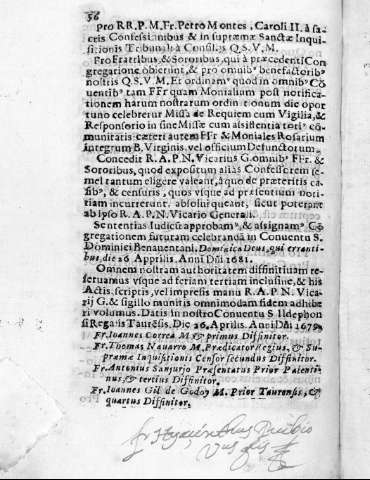 56
pro RR. P. M, Fr. Petro Montes, Caroli II. à sa-
cris Confessionibus & in supræmæ Sanctæ Inqui-
sitionis Tribunali à Consiliis Q. S. V. M.
Pro Fratribus & Sororibus, qui à præcedenti Con
gregatione obierint, & pro omnibꝰ benefactoribꝰ
nostris Q. S. V. M. Et ordinamꝰ quod in omnibꝰ Cō
uentibꝰ tam FFr quam Monialium post notifica-
tionem harum nostrarum ordinationum die opor
tuno celebretur Missa de Requiem cum Vigilia, &
Responsorio in fine Missæ cum assistentia totiꝰ cō-
munitatis cæteri autem FFr & Moniales Rosarium
integrum B. Virginis, vel officium Defunctorum.
Concedit R. A. P. N. Vicarius G. omnibꝰ FFr. &
Sororibus, quod expositum alias Confessorem se-
mel tantum eligere valeant, à quo de præteritis ca-
sibꝰ, & censuris, quos vsque ad præsentium notiti-
tiam incurrerint, absolui queant, sicut poterant
ab ipso R. A. P. N. Vicario Generali.
Sententias Iudicū approbamꝰ, & assignamꝰ Cō
gregationem futuram celebrandā in Conuentu S.
Dominici Benauentani, Domīnica Deus, qui erranti-
bus, die 26 Apprilis. Anni Dñi 1681.
Omnem nostram authoritatem diffinitiuam re-
seruamus vsque ad feriam tertiam inclusiue, & his
Actis scriptis, vel impressis manu R. A. P. N. Vica-
rij G. & sigillo munitis omnimodam fidem adhibe
ri volumus. Datis in nostro Conuentu S. Ildephon
si Regalis Taurēsis, Die 26, Aprilis. Anni Dñi 1679.
Fr. Ioannes Correa M & primus Diffinitor.
Fr. Thomas Nauarro M. Prædicator Regius, & Su-
præmæ Inquisitionis Censor secundus Diffinitor.
Fr. Antonius Sanjurjo Præsentatus Prior Palenti-
nus, & tertius Diffinitor.
Fr. Ioannes Gil de Godoy M. Prior Taurensis, &
quartus Diffinitor.